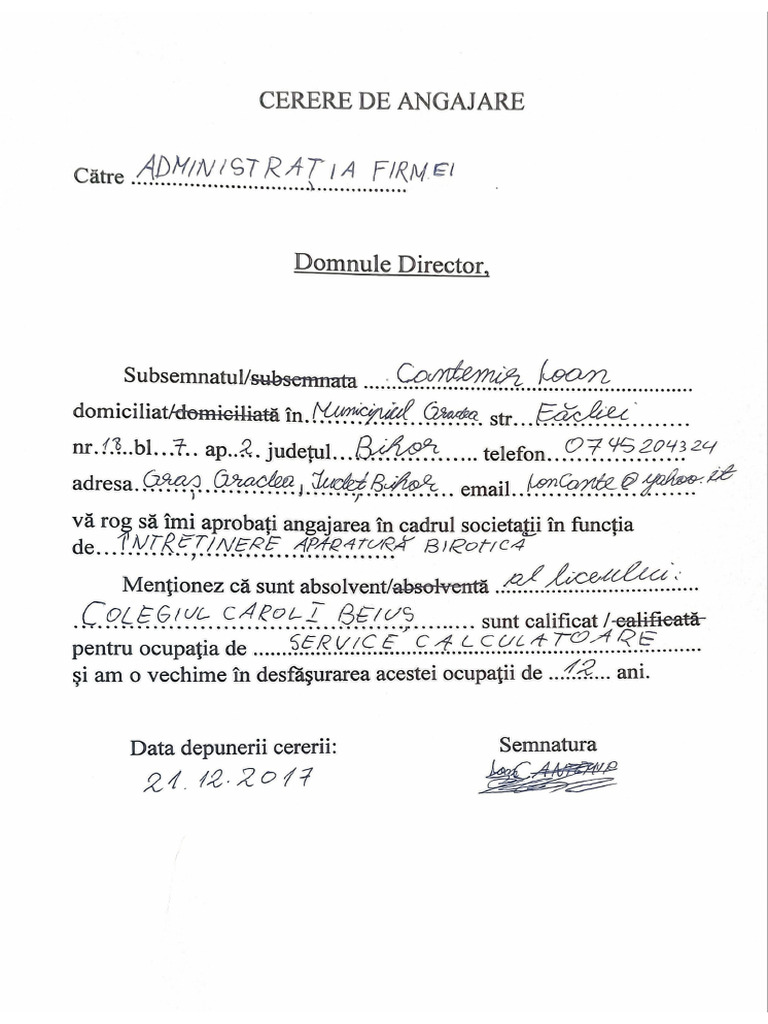 CERERE DE ANGAJARE
Către ADMINISTRAȚIA FIRMEI
Domnule Director,
Subsemnatul/subsemnata Cantemir Ioan
domiciliat/domiciliată în Municipiul Oradea str
nr. 13 bl. 7 ap. 2 județul Bihor telefon 0745204324
adresa Oraș Oradea, Județ Bihor email
vă rog să îmi aprobați angajarea în cadrul societații în funcția
de ÎNTREȚINERE APARATURĂ BIROTICĂ
Menţionez că sunt absolvent/absolventă al liceului:
COLEGIUL CAROL I BEIUȘ sunt calificat / calificată
pentru ocupaţia de SERVICE CALCULATOARE
şi am o vechime în desfăşurarea acestei ocupaţii de 12 ani.
Data depunerii cererii: Semnatura
21.12.2017